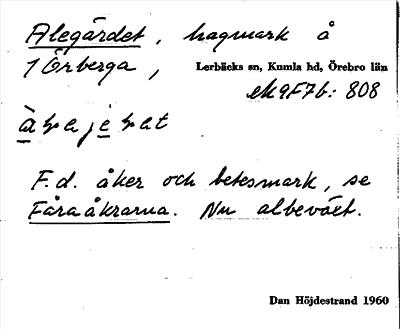 Alegärdet, hagmark å
1 Örberga, Lerbäcks sn, Kumla hd, Örebro län
ek 9F7b: 808
F.d. åker och betesmark, se
Fåraåkrarna. Nu albeväxt.
Dan Höjdestrand 1960